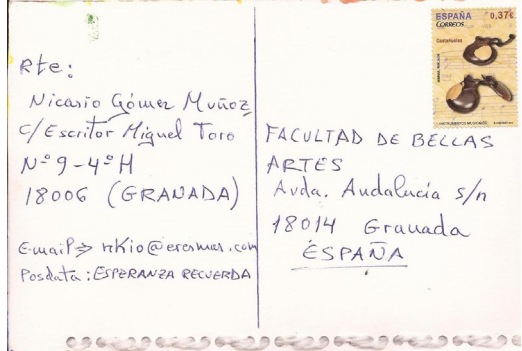 Rte:
Nicasio Gómez Muñoz
C/Escritor Miguel Toro
Nº9-4ºH
18006 (GRANADA)
E-mail⇒ nkio@eresmas.com
Posdata: ESPERANZA RECUERDA
ESPAÑA 0,37€
CORREOS
Castañuelas
INSTRUMENTOS MUSICALES
FACULTAD DE BELLAS
ARTES
Avda. Andalucía s/n
18014 Granada
ESPAÑA